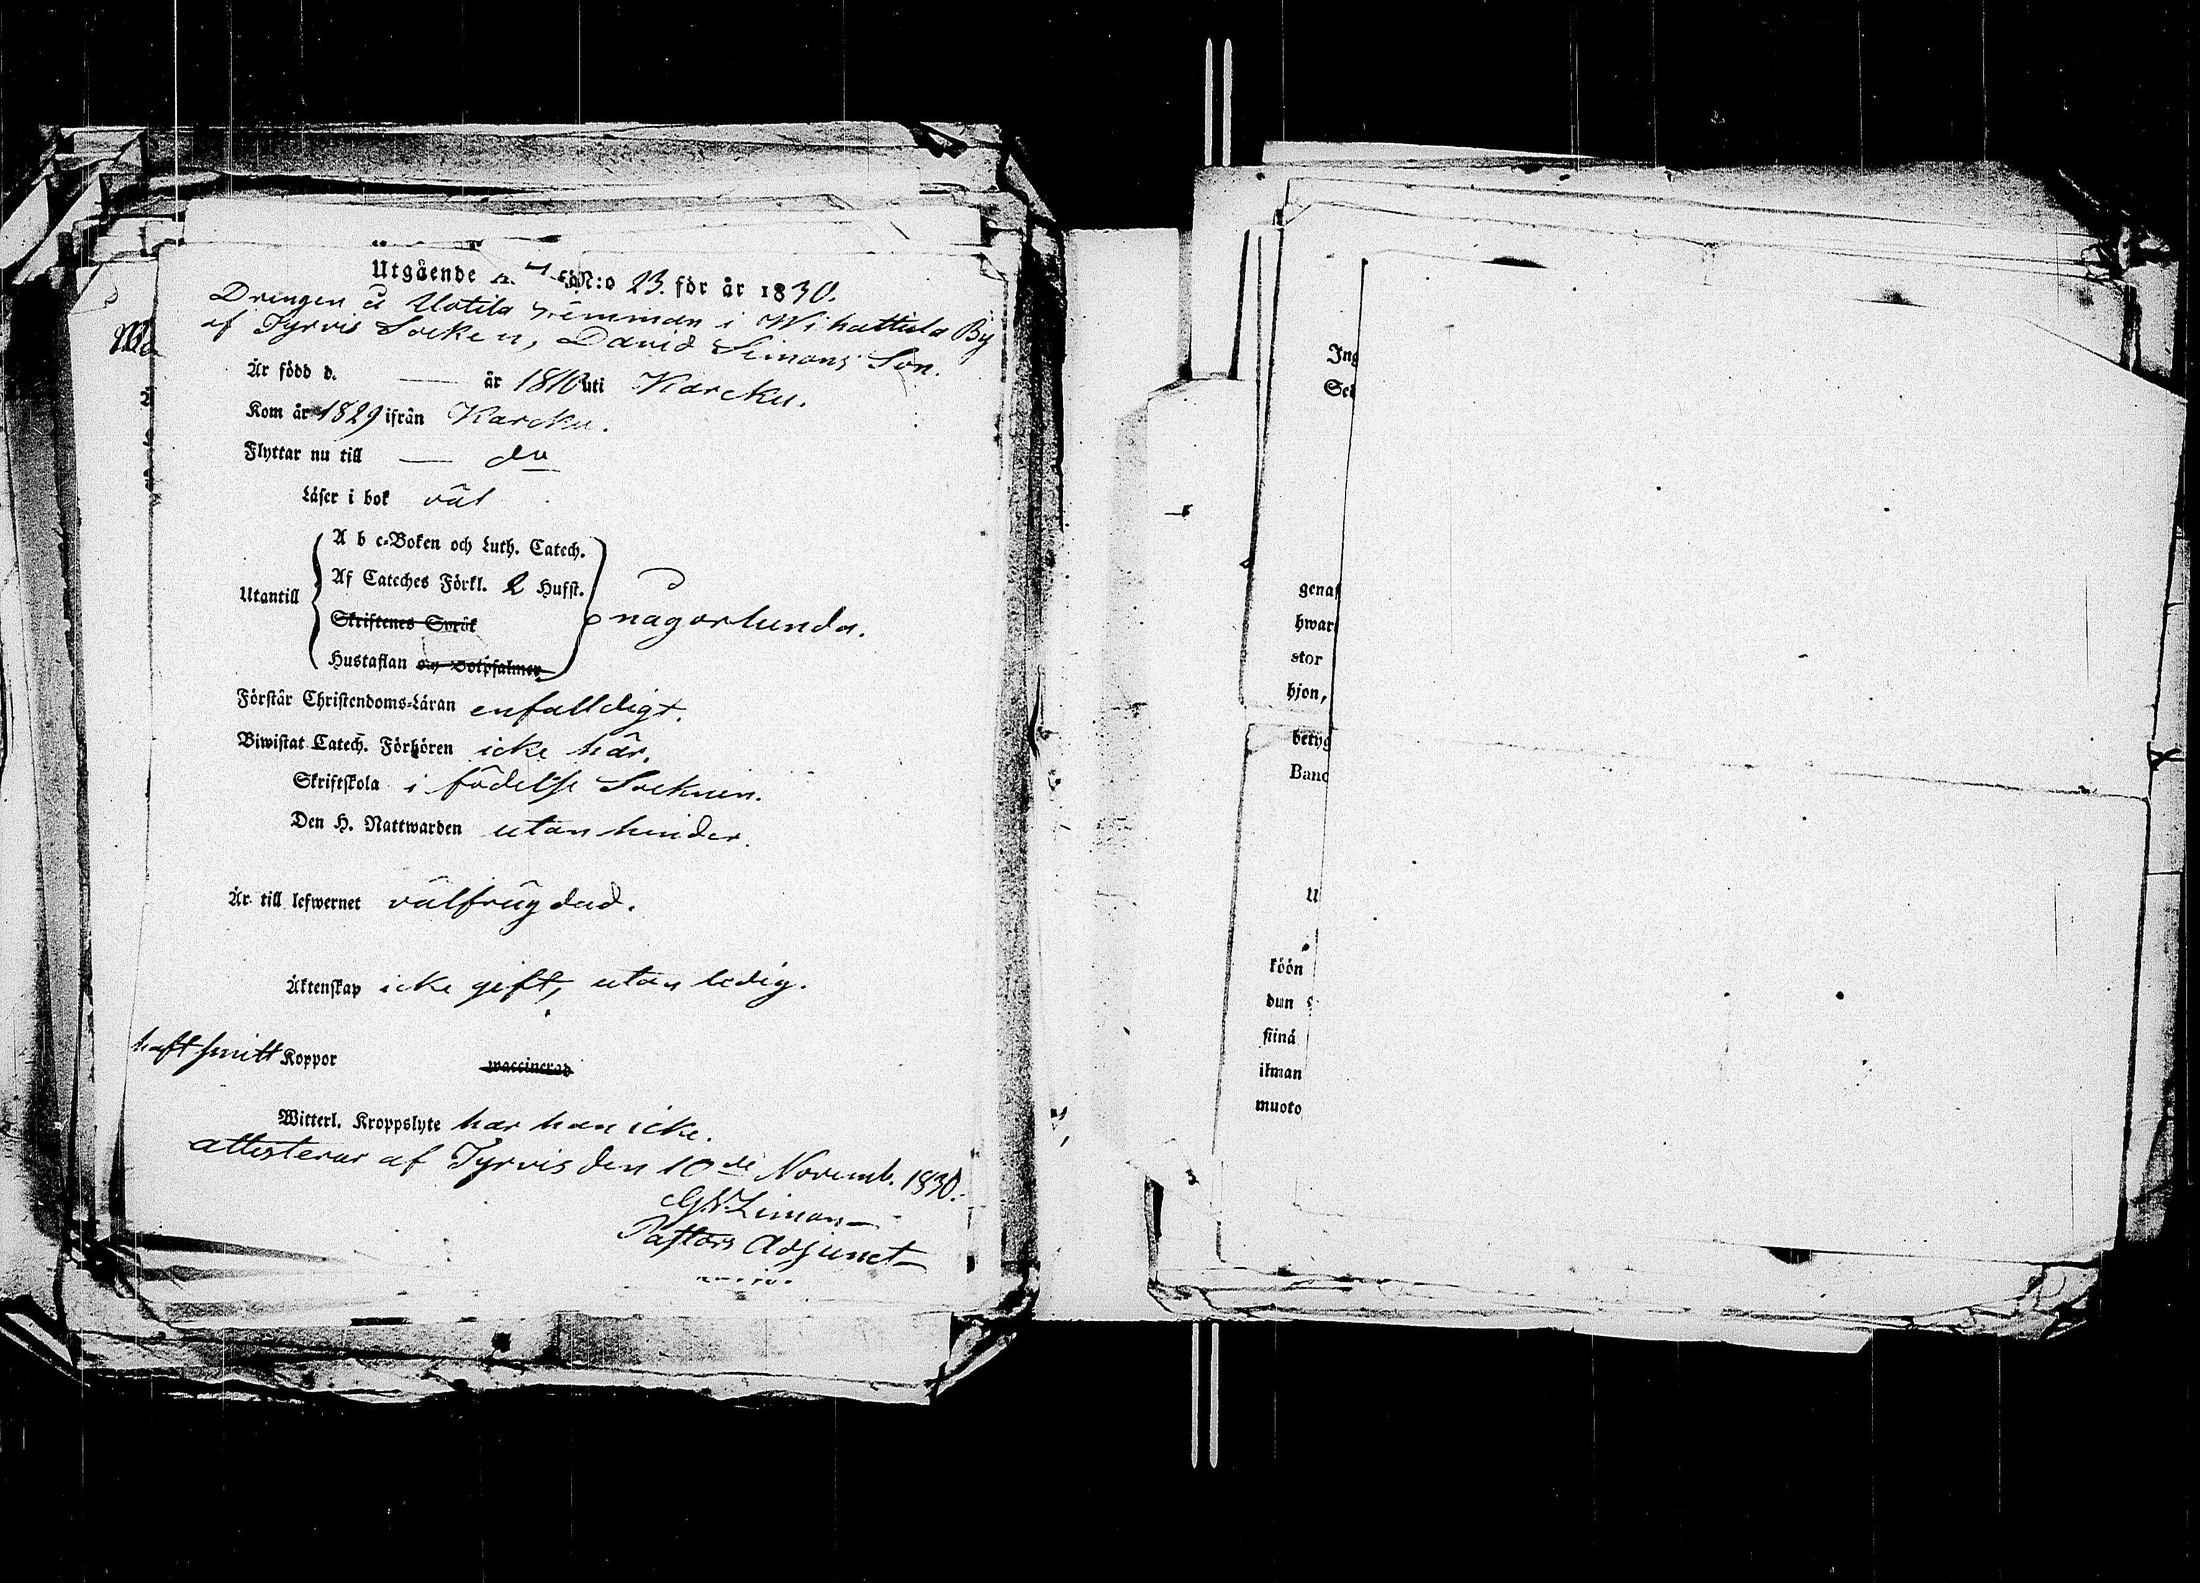 Utgående N:o 23. för år 1830.
Drengen å Uotila hemman i Wihattula By
af Tyrvis Socken, David Simons Son.
Är född d. — år 1810 uti Karcku.
Kom år 1829 ifrån Karcku.
Flyttar nu till — do
Läser i bok väl
A b c-Boken och Luth. Catech.
Af Cateches Förkl. 2 Hufst.
Utantill
Skriftenes Språk
någorlunda.
Hustaflan och Botpsalmer
Förstår Christendoms-Läran enfalldigt.
Biwistat Catech. Förhören icke här.
Skriftskola i födelse Socknen.
Den H. Nattwarden utan hinder.
Är till lefwernet välfrägdad.
Äktenskap icke gift, utan ledig.
haft smitt Koppor waccinerad
Witterl. Kroppslyte har han icke.
attesterar af Tyrvis den 10de Novemb. 1830.
Pastors Adjunct
Ing
genas
hwar
stor
hjon,
betyg
Banc
U
köön
dun
siinä
ilman
muoto